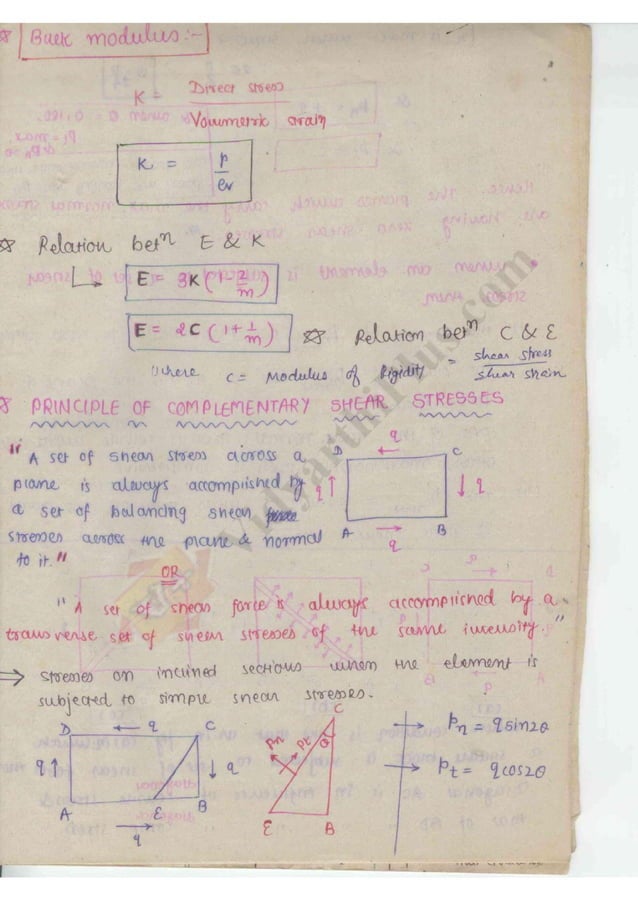 Bulk modulus:-
K = Direct stress / Volumetric strain
K = p / ev
Relation betn E & K
E = 3K (1 - 2/m)
E = 2C (1 + 1/m) Relation betn C & E
where C = Modulus of Rigidity = shear stress / shear strain
PRINCIPLE OF COMPLEMENTARY SHEAR STRESSES
" A set of shear stress across a
plane is always accomplished by
a set of balancing shear
stresses across the plane & normal
to it. "
D q C
q q
A q B
OR
" A set of shear force is always accomplished by a
transverse set of shear stresses of the same intensity. "
⇒ stresses on inclined sections when the element is
subjected to simple shear stresses.
D q C
q q
A E B
q
C
Pn Pt θ
E B
→ Pn = q sin2θ
→ Pt = q cos2θ
Vidyarthiplus.com